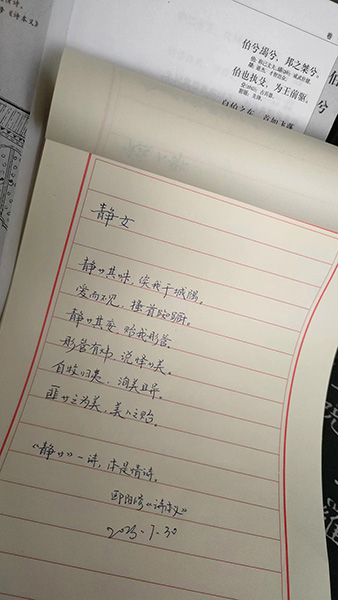 伯兮朅兮，邦之桀兮，
伯也执殳，为王前驱。
自伯之东，首如飞蓬
静女
静女其姝，俟我于城隅。
爱而不见，搔首踟蹰。
静女其娈，贻我彤管。
彤管有炜，说怿女美。
自牧归荑，洵美且异。
匪女之为美，美人之贻。
《静女》一诗，本是情诗。
欧阳修《诗本义》
2023-7-30